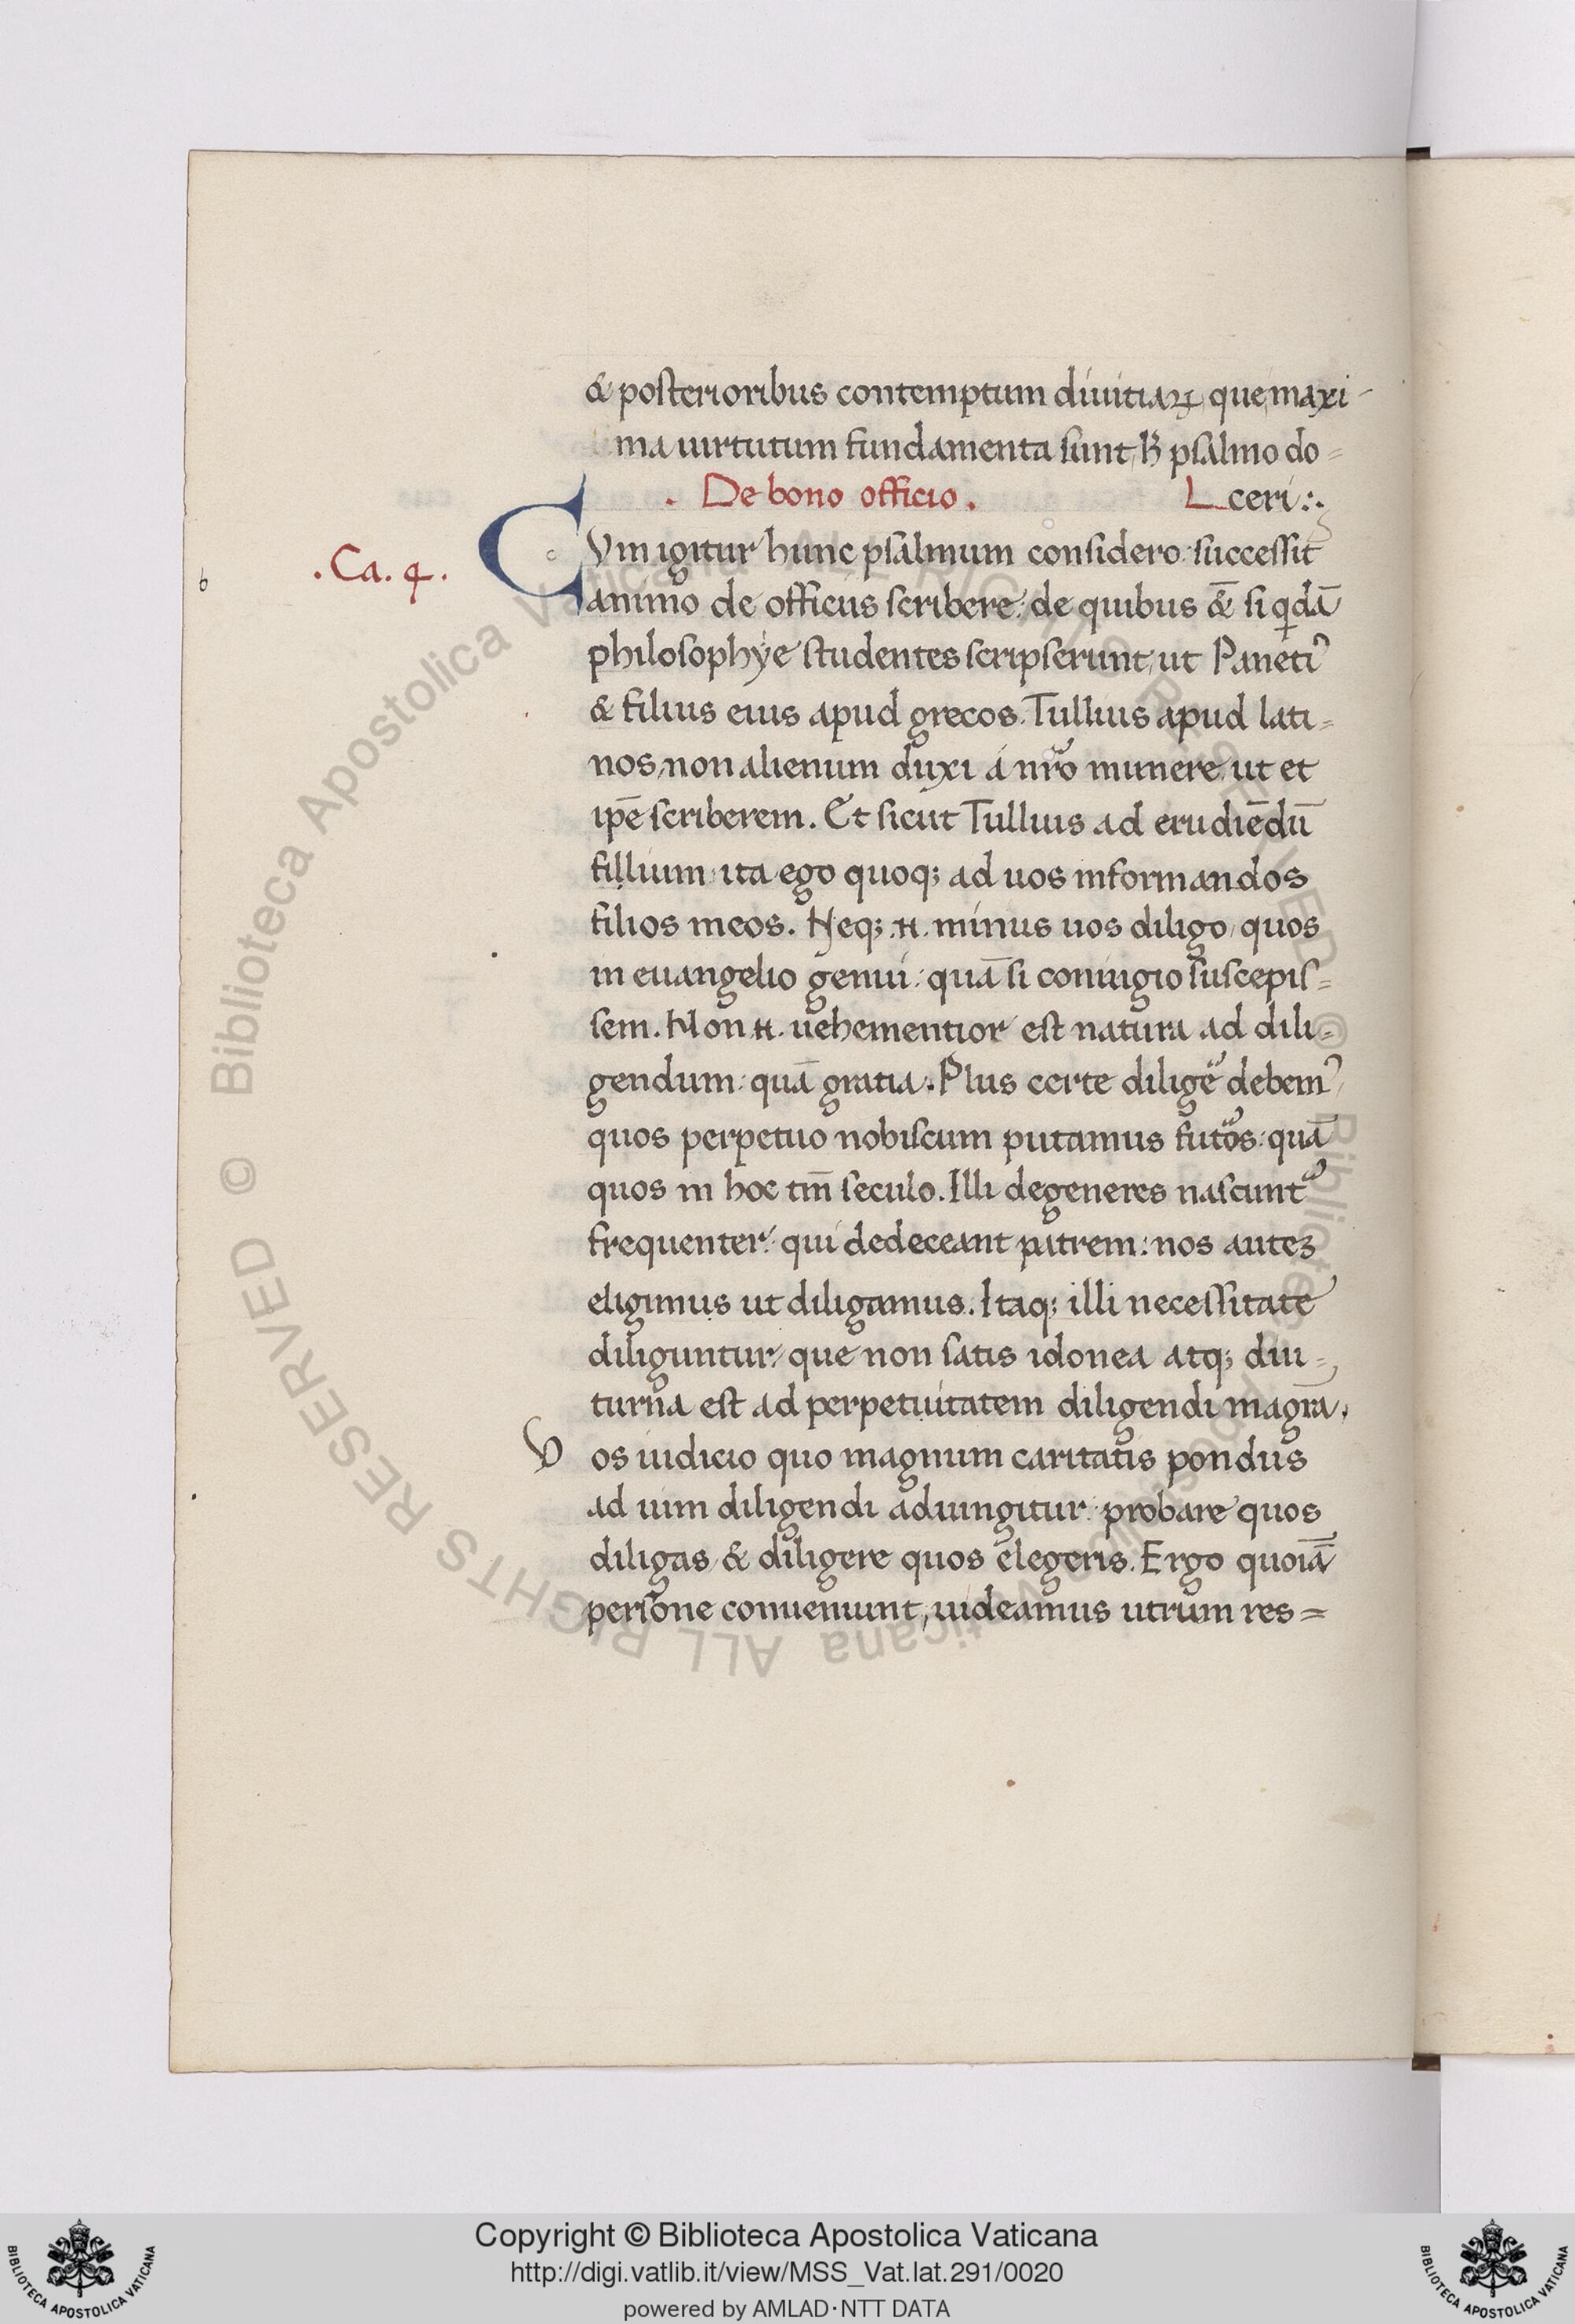 & posterioribus contemptum diuitiaꝝ, que maxi-
ma uirtutum fundamenta sunt, ꝧ psalmo do=
. De bono officio . ceri:.
.Ca.4.
CVm igitur hunc psalmum considero: successit
animo de officiis scribere: de quibus &̄ si qdā
philosophye studentes scripserunt, ut Paneti᾽
& filius eius apud grecos. Tullius apud lati=
nos, non alienum duxi á nr̃o munere, ut et
ip̄e scriberem. Et sicut Tullius ad erudiēdū
fillium: ita ego quoq; ad uos informandos
filios meos. Neq; .n. minus uos diligo, quos
in euangelio genui: quā si coniugio suscepis=
sem. Non .n. uehementior est natura ad dili=
gendum: quā gratia. Plus certe diligẽ debem᾽
quos perpetuo nobiscum putamus futõs: quā
quos in hoc tm̄ seculo. Illi degeneres nascunt᷑
frequenter: qui dedeceant patrem: nos auteꝫ
eligimus ut diligamus. Itaq; illi necessitate
diliguntur, que non satis idonea atq; diu=
turna est ad perpetuitatem diligendi magr̄a.
Vos iudicio quo magnum caritatis pondus
ad uim diligendi adiungitur: probare quos
diligas, & diligere quos elegeris. Ergo quoiā
persone conueniunt, uideamus utrum res=
b
Biblioteca Apostolica Vaticana ALL RIGHTS RESERVED ©
Copyright © Biblioteca Apostolica Vaticana
http://digi.vatlib.it/view/MSS_Vat.lat.291/0020
powered by AMLAD·NTT DATA
BIBLIOTECA APOSTOLICA VATICANA
BIBLIOTECA APOSTOLICA VATICANA